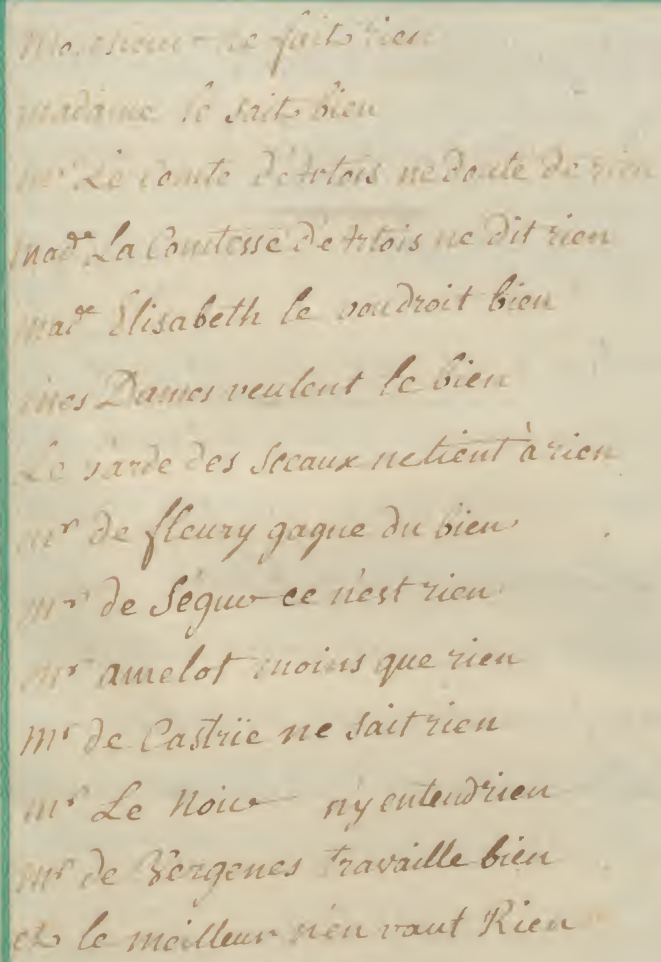 Monsieur ne fait rien
madame le sait bien
mr Le comte d'Artois ne doute de rien
made La Comtesse d'Artois ne dit rien
made Elisabeth le voudroit bien
mes Dames veulent le bien
Le garde des Sceaux ne tient à rien
mr de fleury gagne du bien
mr de Ségur ce n'est rien
mr amelot moins que rien
mr de Castrie ne sait rien
mr Le Noir n'y entend rien
mr de Vergenes travaille bien
et le meilleur n'en vaut Rien